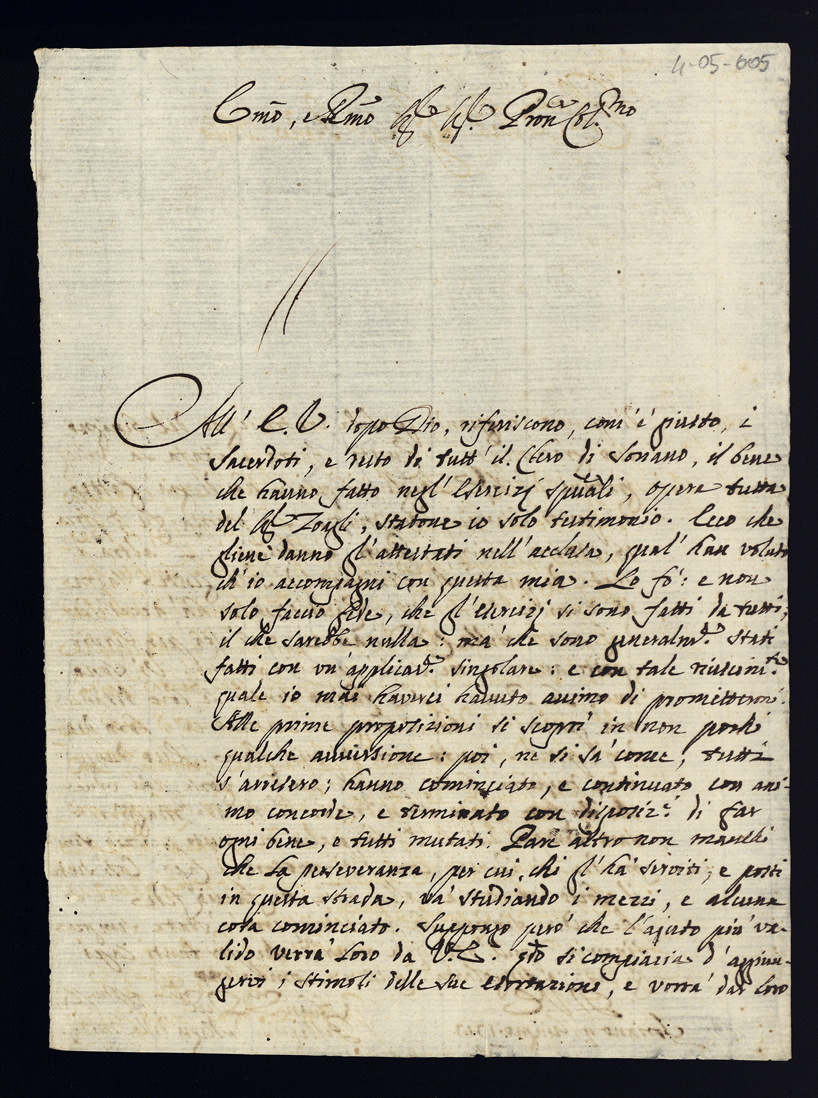 4-05-605
Emo, e Rmo Sre Sre Pron Col.mo
All' E. V. dopo Dio, riferiscono, com' è giusto, i
Sacerdoti, e resto di tutt' il Clero di Soriano, il bene
che hanno fatto negl' Esercizj spuali, opera tutta
del Sr Zoagli, statone io solo testimonio. Ecco che
gliene danno gl' attestati nell' acclusa, qual' han voluto
ch' io accompagni con questa mia. Lo fò: e non
solo faccio fede, che gl' esercizj si sono fatti da tutti,
il che sarebbe nulla: mà che sono generalmte. stati
fatti con un applicae. singolare: e con tale riuscim.to
quale io mai haverei havuto animo di promettermi.
Alle prime proposizioni si scoprì in non pochi
qualche avversione: poi, ne si sà come, tutti
s' arresero; hanno cominciato, e continuato con ani-
mo concorde, e terminato con disposize. di far
ogni bene, e tutti mutati. Pare altro non manchi
che la perseveranza, per cui, chi gl' hà serviti, e posti
in questa strada, và studiando i mezzi, e alcuna
cosa cominciato. Suppongo però che l' ajuto più va-
lido verrà loro da V. E. qto si compiaccia d' aggiun-
gervi i stimoli delle sue esortazioni, e vorrà dar loro